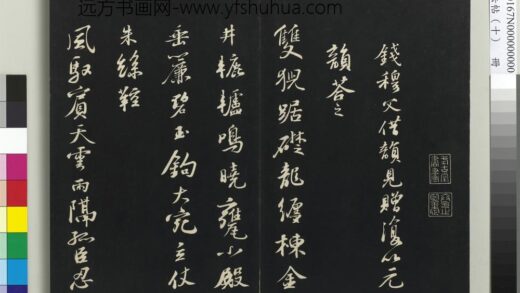 远方书画网-www.yfshuhua.com
錢穆父借韻見贈復以元
韻荅之
雙猊踞礎龍纏棟金
井轆轤鳴曉甕小殿
垂簾碧玉鉤大宛立仗
朱絲鞚
風馭賓天雲雨隔孤臣忍
0167N000000000
帖（十）